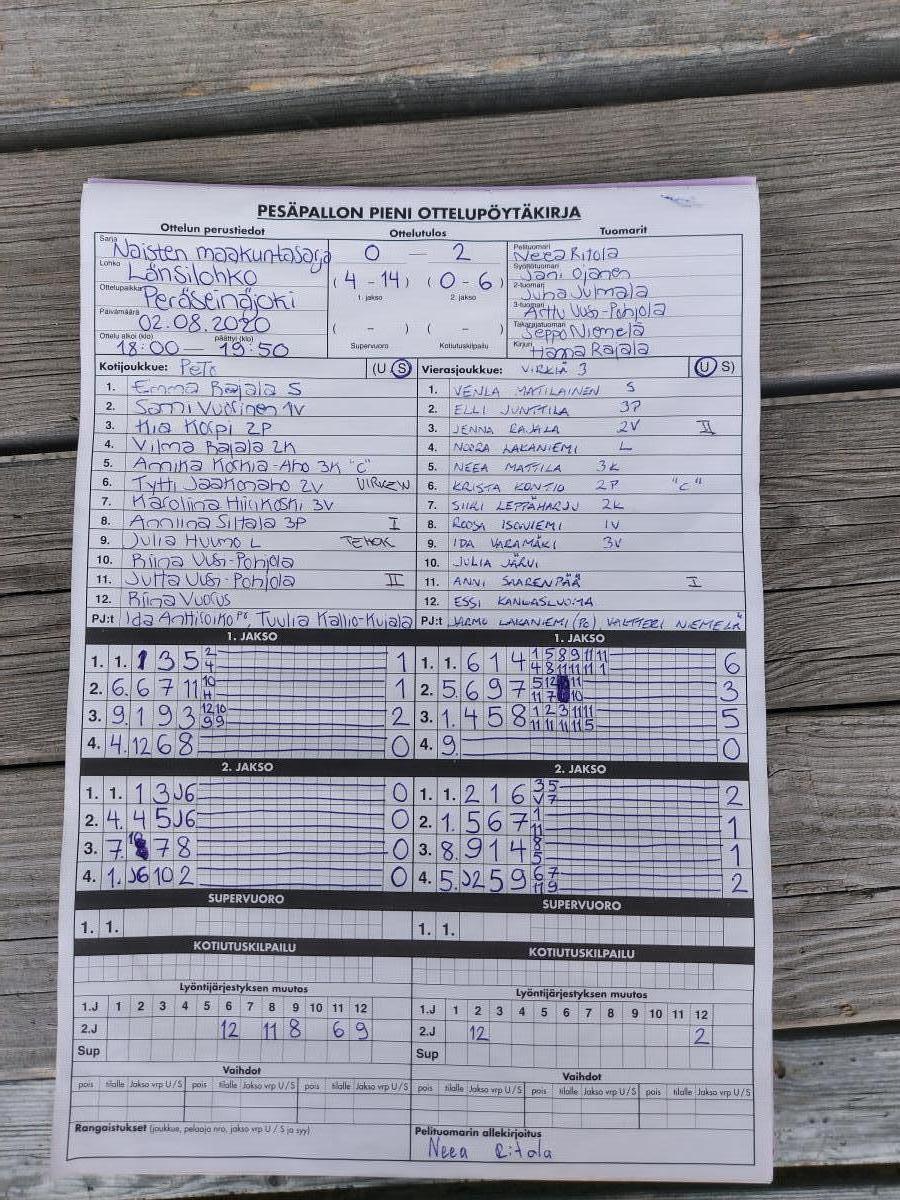 PESÄPALLON PIENI OTTELUPÖYTÄKIRJA
Ottelun perustiedot
Ottelutulos
Tuomarit
Sarja Naisten maakuntasarja
Lohko Länsilohko
Ottelupaikka Peräseinäjoki
Päivämäärä 02.08.2020
Ottelu alkoi (klo) päättyi (klo)
18:00 — 19:50
0 — 2
(4 - 14) (0 - 6)
1. jakso 2. jakso
( - ) ( - )
Supervuoro Kotiutuskilpailu
Pelituomari Neea Ritola
Syöttötuomari Jani Ojanen
2-tuomari Juha Julmala
3-tuomari Arttu Uusi-Pohjola
Takarajatuomari Seppo Niemelä
Kirjuri Hanna Rajala
Kotijoukkue: PeTo (U S)
1. Emma Rajala S
2. Sami Vuorinen 1V
3. Kia Korpi 2P
4. Vilma Rajala 2K
5. Annika Korkia-Aho 3K "C"
6. Tytti Jaakonaho 2V
7. Karoliina Hirikoski 3V
8. Anniina Siltala 3P I
9. Julia Huumo L
10. Riina Uusi-Pohjola
11. Jutta Uusi-Pohjola II
12. Riina Vuorus
PJ:t Ida Anttiroiko PJ, Tuulia Kallio-Kujala
Vierasjoukkue: VIRKIÄ 3 (U S)
1. VENLA MATILAINEN S
2. ELLI JUNTTILA 3P
3. JENNA RAJALA 2V II
4. NOORA LAKANIEMI L
5. NEEA MATTILA 3K
6. KRISTA KONTIO 2P "C"
7. SIIRI LEPPÄHARJU 2K
8. ROOSA ISONIEMI 1V
9. IDA VARAMÄKI 3V
10. JULIA JÄRVI
11. ANNI SAARENPÄÄ I
12. ESSI KANGASLUOMA
PJ:t JARMO LAKANIEMI (PJ), VALTTERI NIEMELÄ
1. JAKSO
1. 1. 1 3 5 2 4 1
2. 6. 6 7 11 10 4 1
3. 9. 1 9 3 12 10 9 9 2
4. 4. 12 6 8 0
1. JAKSO
1. 1. 6 1 4 1 5 8 9 11 11 4 8 11 11 11 1 6
2. 5. 6 9 7 5 12 11 11 7 10 3
3. 1. 4 5 8 1 2 3 11 11 11 11 11 11 5 5
4. 9. 0
2. JAKSO
1. 1. 1 3 J6 0
2. 4. 4 5 J6 0
3. 7. 10 7 8 0
4. 1. J6 10 2 0
2. JAKSO
1. 1. 2 1 6 3 5 V 7 2
2. 1. 5 6 7 1 11 1
3. 8. 9 1 4 8 5 1
4. 5. J2 5 9 6 7 11 9 2
SUPERVUORO
1. 1.
SUPERVUORO
1. 1.
KOTIUTUSKILPAILU
KOTIUTUSKILPAILU
Lyöntijärjestyksen muutos
1.J 1 2 3 4 5 6 7 8 9 10 11 12
2.J 12 11 8 6 9
Sup
Lyöntijärjestyksen muutos
1.J 1 2 3 4 5 6 7 8 9 10 11 12
2.J 12 2
Sup
Vaihdot
pois tilalle Jakso vrp U / S pois tilalle Jakso vrp U / S pois tilalle Jakso vrp U / S
Vaihdot
pois tilalle Jakso vrp U / S pois tilalle Jakso vrp U / S pois tilalle Jakso vrp U / S
Rangaistukset (joukkue, pelaaja nro, jakso vrp U / S ja syy)
Pelituomarin allekirjoitus
Neea Ritola